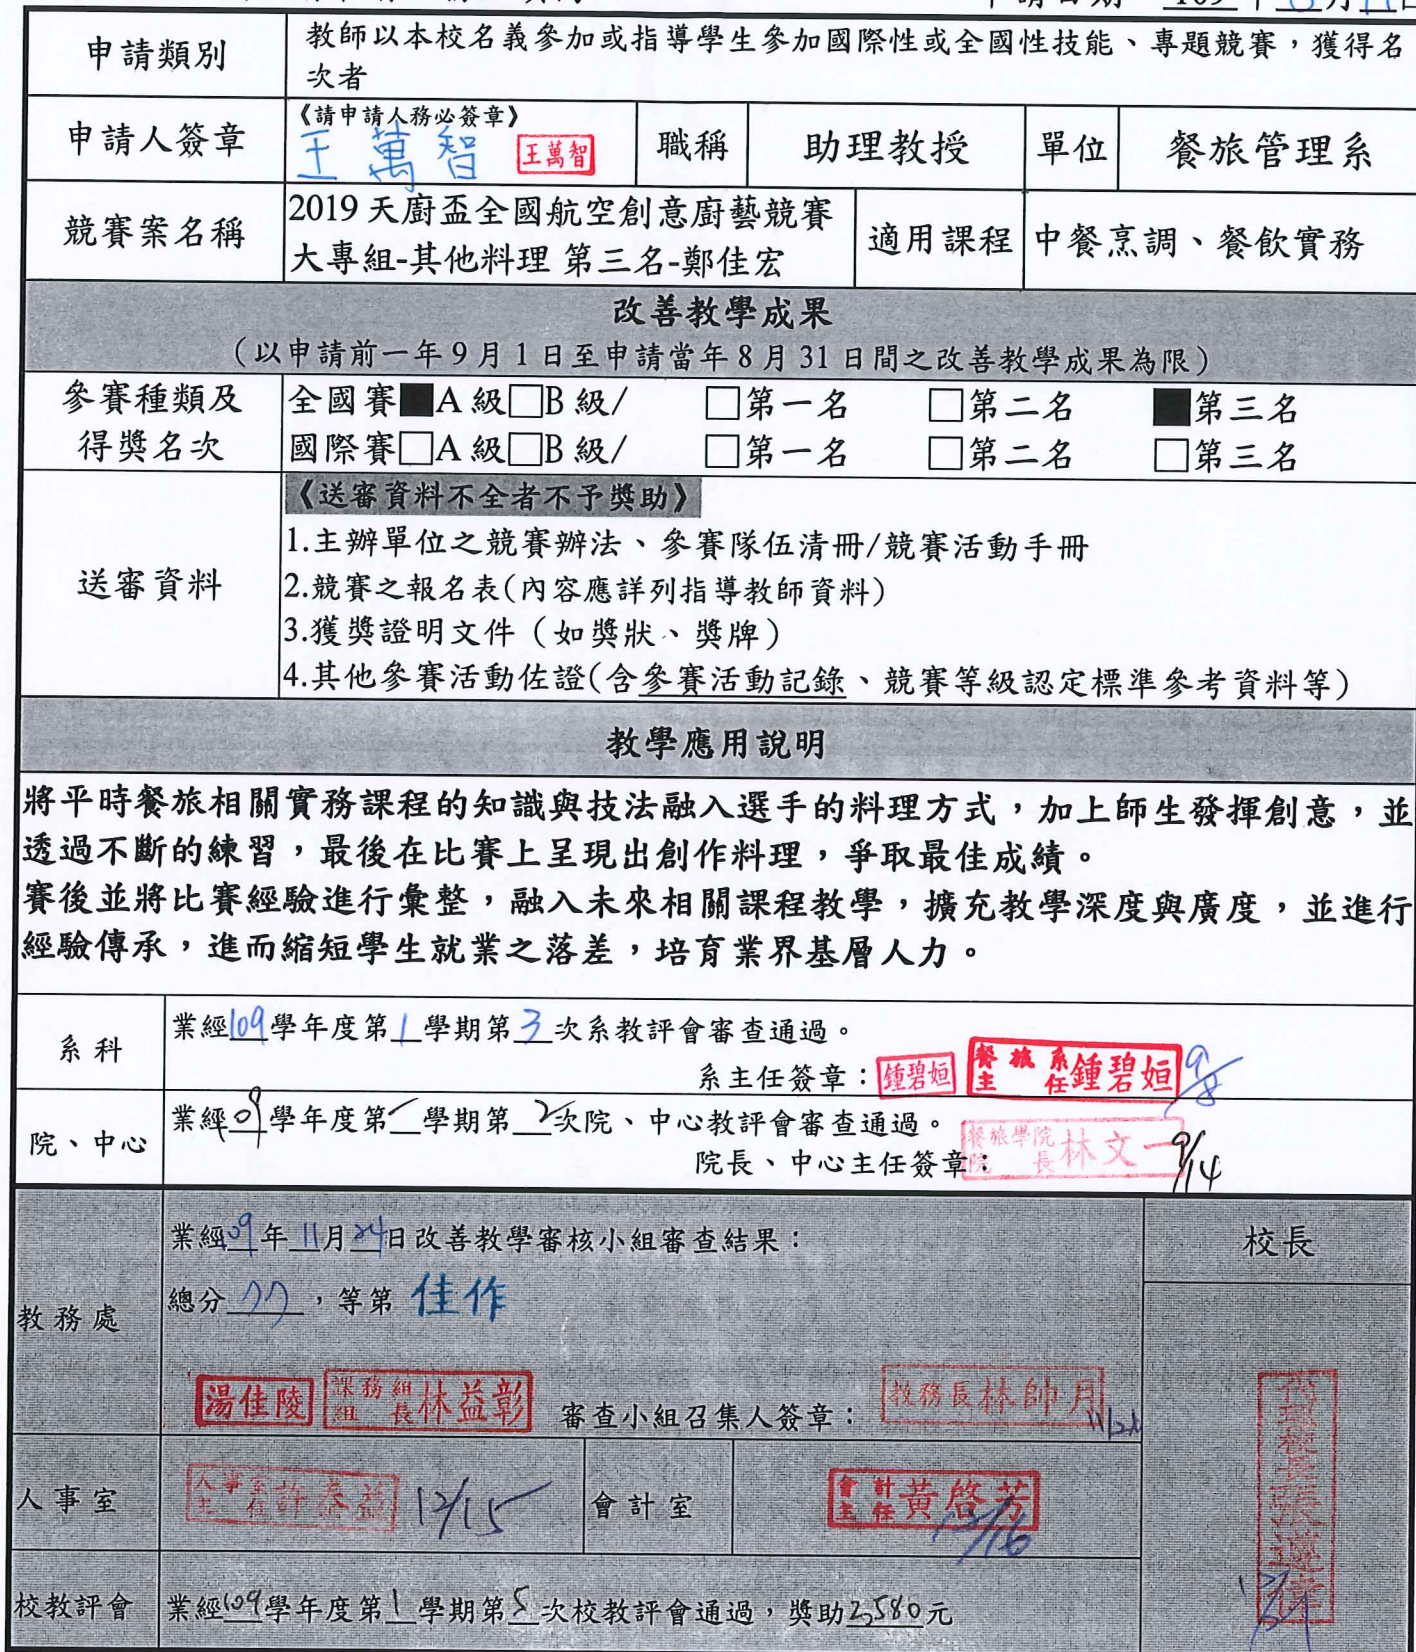 109
申請類別
教師以本校名義參加或指導學生參加國際性或全國性技能、專題競賽，獲得名
次者
申請人簽章
《請申請人務必簽章》
王萬智 王萬智
職稱
助理教授
單位
餐旅管理系
競賽案名稱
2019天廚盃全國航空創意廚藝競賽
大專組-其他料理 第三名-鄭佳宏
適用課程
中餐烹調、餐飲實務
改善教學成果
（以申請前一年9月1日至申請當年8月31日間之改善教學成果為限）
參賽種類及
得獎名次
全國賽■A級□B級/ □第一名 □第二名 ■第三名
國際賽□A級□B級/ □第一名 □第二名 □第三名
送審資料
《送審資料不全者不予獎助》
1.主辦單位之競賽辦法、參賽隊伍清冊/競賽活動手冊
2.競賽之報名表(內容應詳列指導教師資料)
3.獲獎證明文件（如獎狀、獎牌）
4.其他參賽活動佐證(含參賽活動記錄、競賽等級認定標準參考資料等)
教學應用說明
將平時餐旅相關實務課程的知識與技法融入選手的料理方式，加上師生發揮創意，並
透過不斷的練習，最後在比賽上呈現出創作料理，爭取最佳成績。
賽後並將比賽經驗進行彙整，融入未來相關課程教學，擴充教學深度與廣度，並進行
經驗傳承，進而縮短學生就業之落差，培育業界基層人力。
系科
業經109學年度第1學期第3次系教評會審查通過。
系主任簽章：鍾碧姮 餐旅系主任鍾碧姮 9/8
院、中心
業經09學年度第一學期第2次院、中心教評會審查通過。
院長、中心主任簽章： 餐旅學院院長林文一 9/14
教務處
業經09年11月24日改善教學審核小組審查結果：
總分77，等第 佳作
湯佳陵 課務組組長林益彰 審查小組召集人簽章：教務長林帥月
校長
人事室
人事室主任許泰益 12/15
會計室
會計主任黃啓芳 12/16
校教評會
業經109學年度第1學期第5次校教評會通過，獎助2,580元
代理校長張遵偉